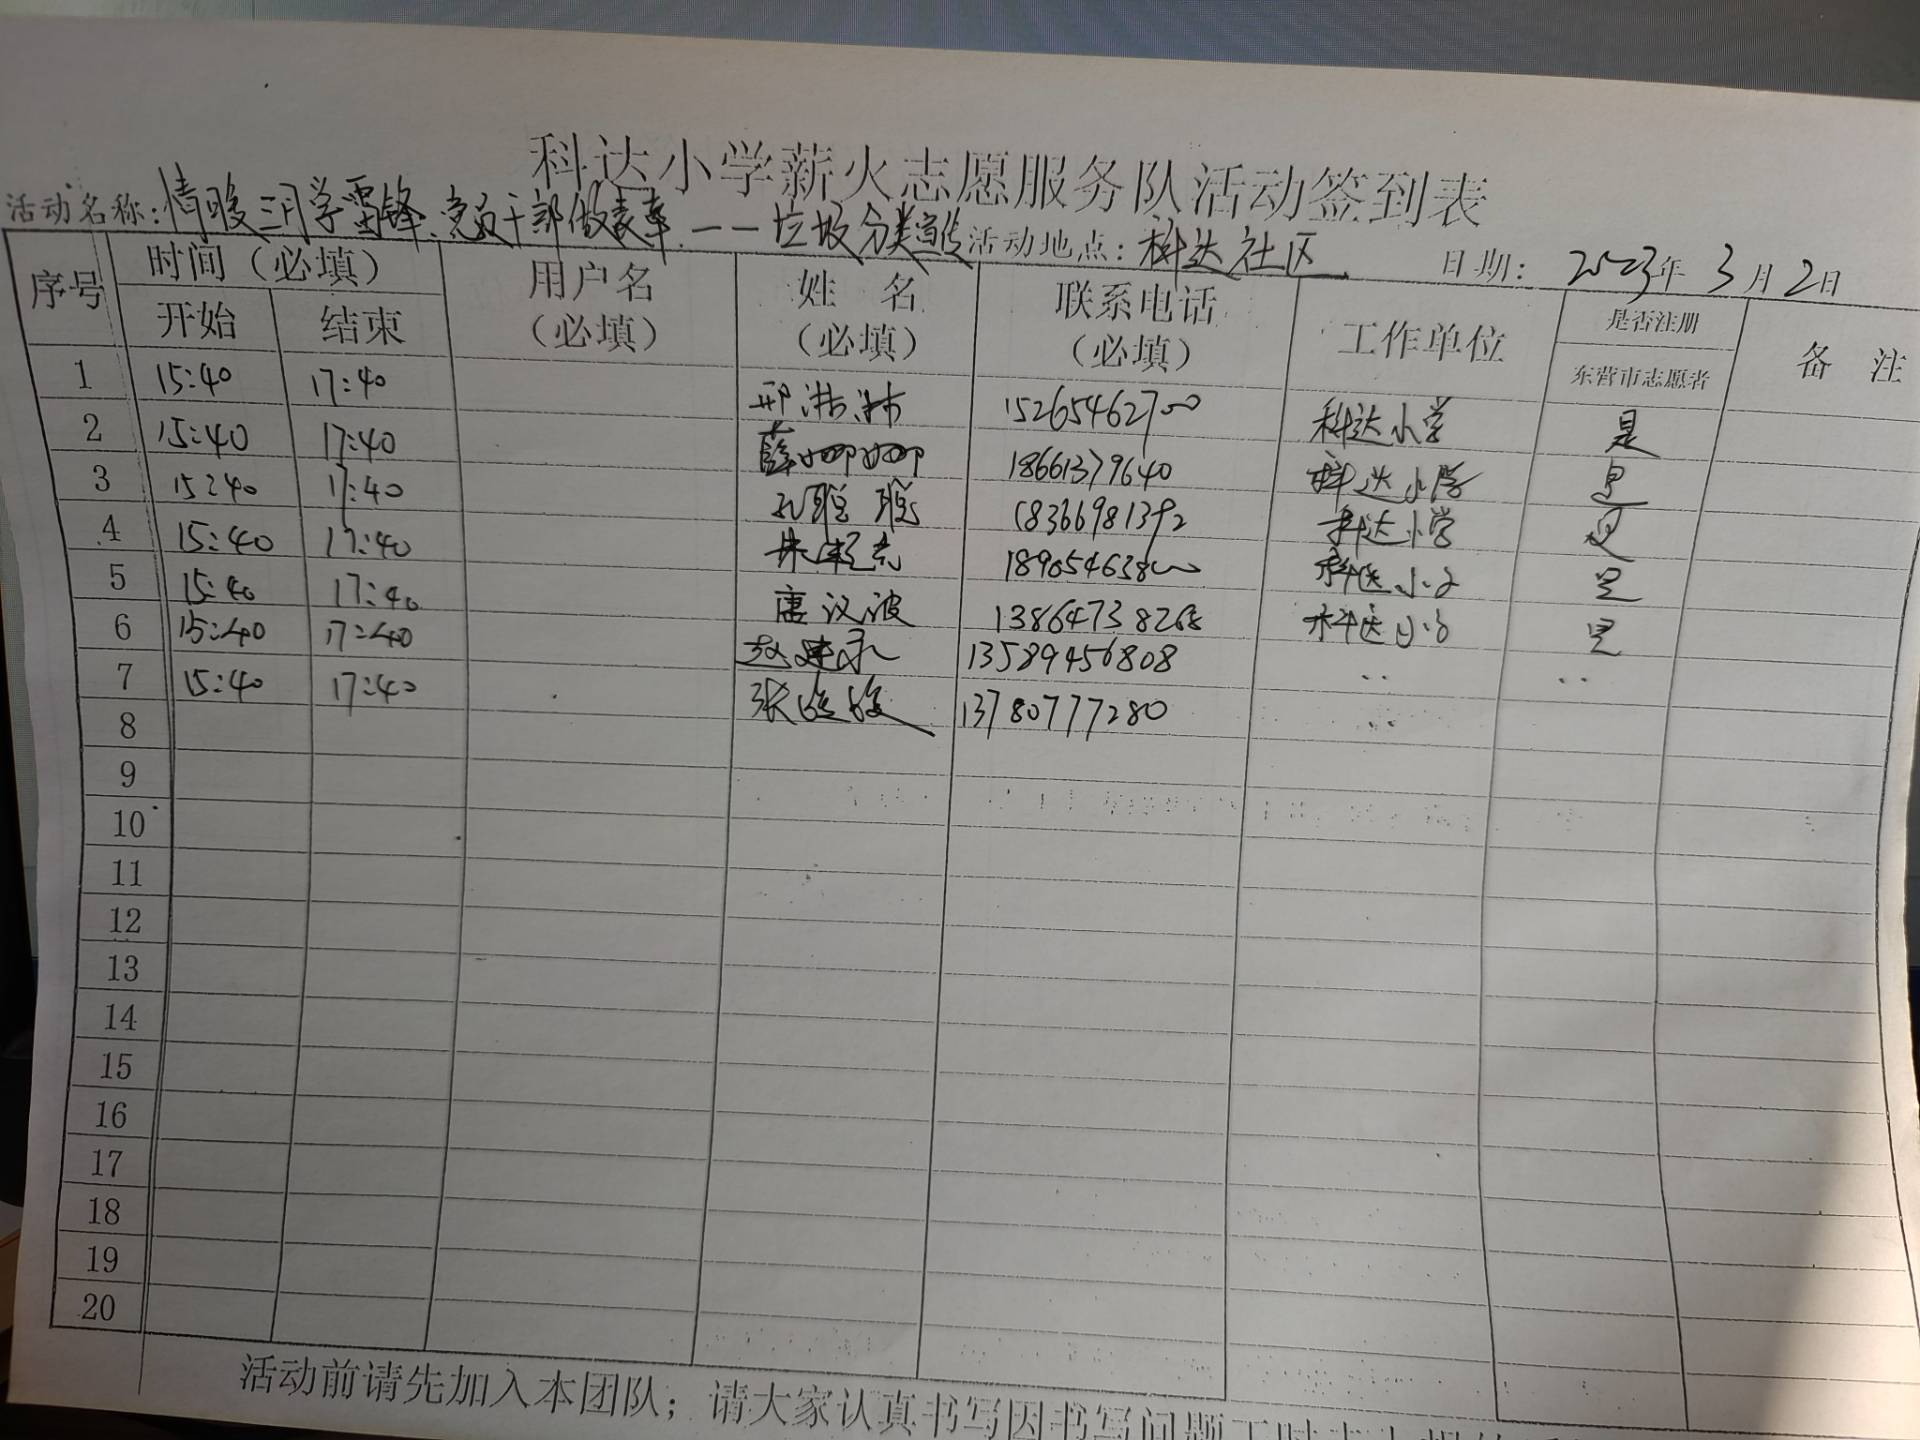 科达小学薪火志愿服务队活动签到表
活动名称：情暖三月学雷锋、党员干部做表率、——垃圾分类宣传 活动地点：科达社区 日期：2023年3月2日
序号 时间（必填） 用户名（必填） 姓 名（必填） 联系电话（必填） 工作单位 是否注册 东营市志愿者 备 注
开始 结束
1 15:40 17:40 邢沭沭 15265462700 科达小学 是
2 15:40 17:40 薛娜娜 18661379640 科达小学 是
3 15:40 17:40 孔 18366981392 科达小学 是
4 15:40 17:40 朱 18905463800 科达小学 是
5 15:40 17:40 唐汉波 13864738268 科达小学 是
6 15:40 17:40 赵建 13589456808 〃 〃
7 15:40 17:40 张 13780777280 〃
8
9
10
11
12
13
14
15
16
17
18
19
20
活动前请先加入本团队；请大家认真书写因书写问题